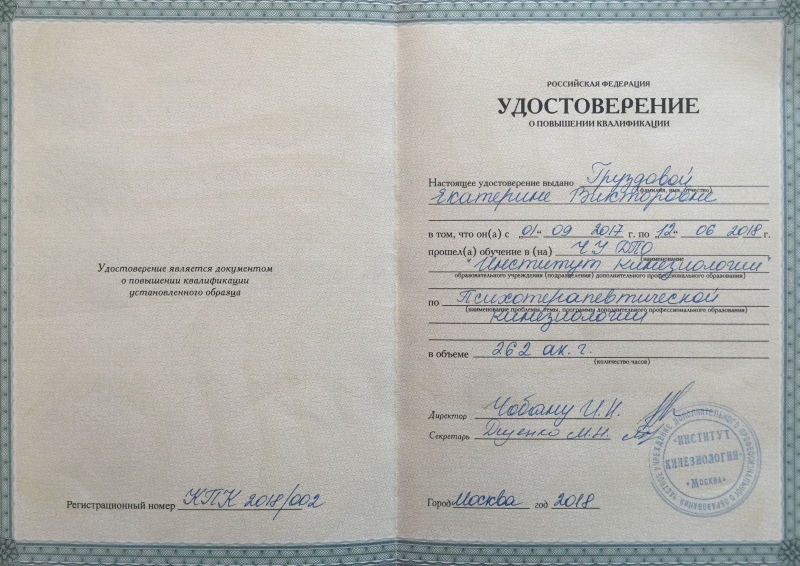 Удостоверение является документом
о повышении квалификации
установленного образца
Регистрационный номер КПК 2018/002
РОССИЙСКАЯ ФЕДЕРАЦИЯ
УДОСТОВЕРЕНИЕ
О ПОВЫШЕНИИ КВАЛИФИКАЦИИ
Настоящее удостоверение выдано Груздовой
(фамилия, имя, отчество)
Екатерине Викторовне
в том, что он(а) с 01 " 09 2017 г. по 12 " 06 2018 г.
прошел(а) обучение в (на) ЧУ ДПО
(наименование
"Институт кинезиологии"
образовательного учреждения (подразделения) дополнительного профессионального образования)
по Психотерапевтической
(наименование проблемы, темы, программы дополнительного профессионального образования)
кинезиологии
в объеме 262 ак. г.
(количество часов)
Директор Чобану И.И.
Секретарь М.Н.
Город Москва год 2018
ЧАСТНОЕ УЧРЕЖДЕНИЕ ДОПОЛНИТЕЛЬНОГО ПРОФЕССИОНАЛЬНОГО ОБРАЗОВАНИЯ
"ИНСТИТУТ
КИНЕЗИОЛОГИИ"
Москва